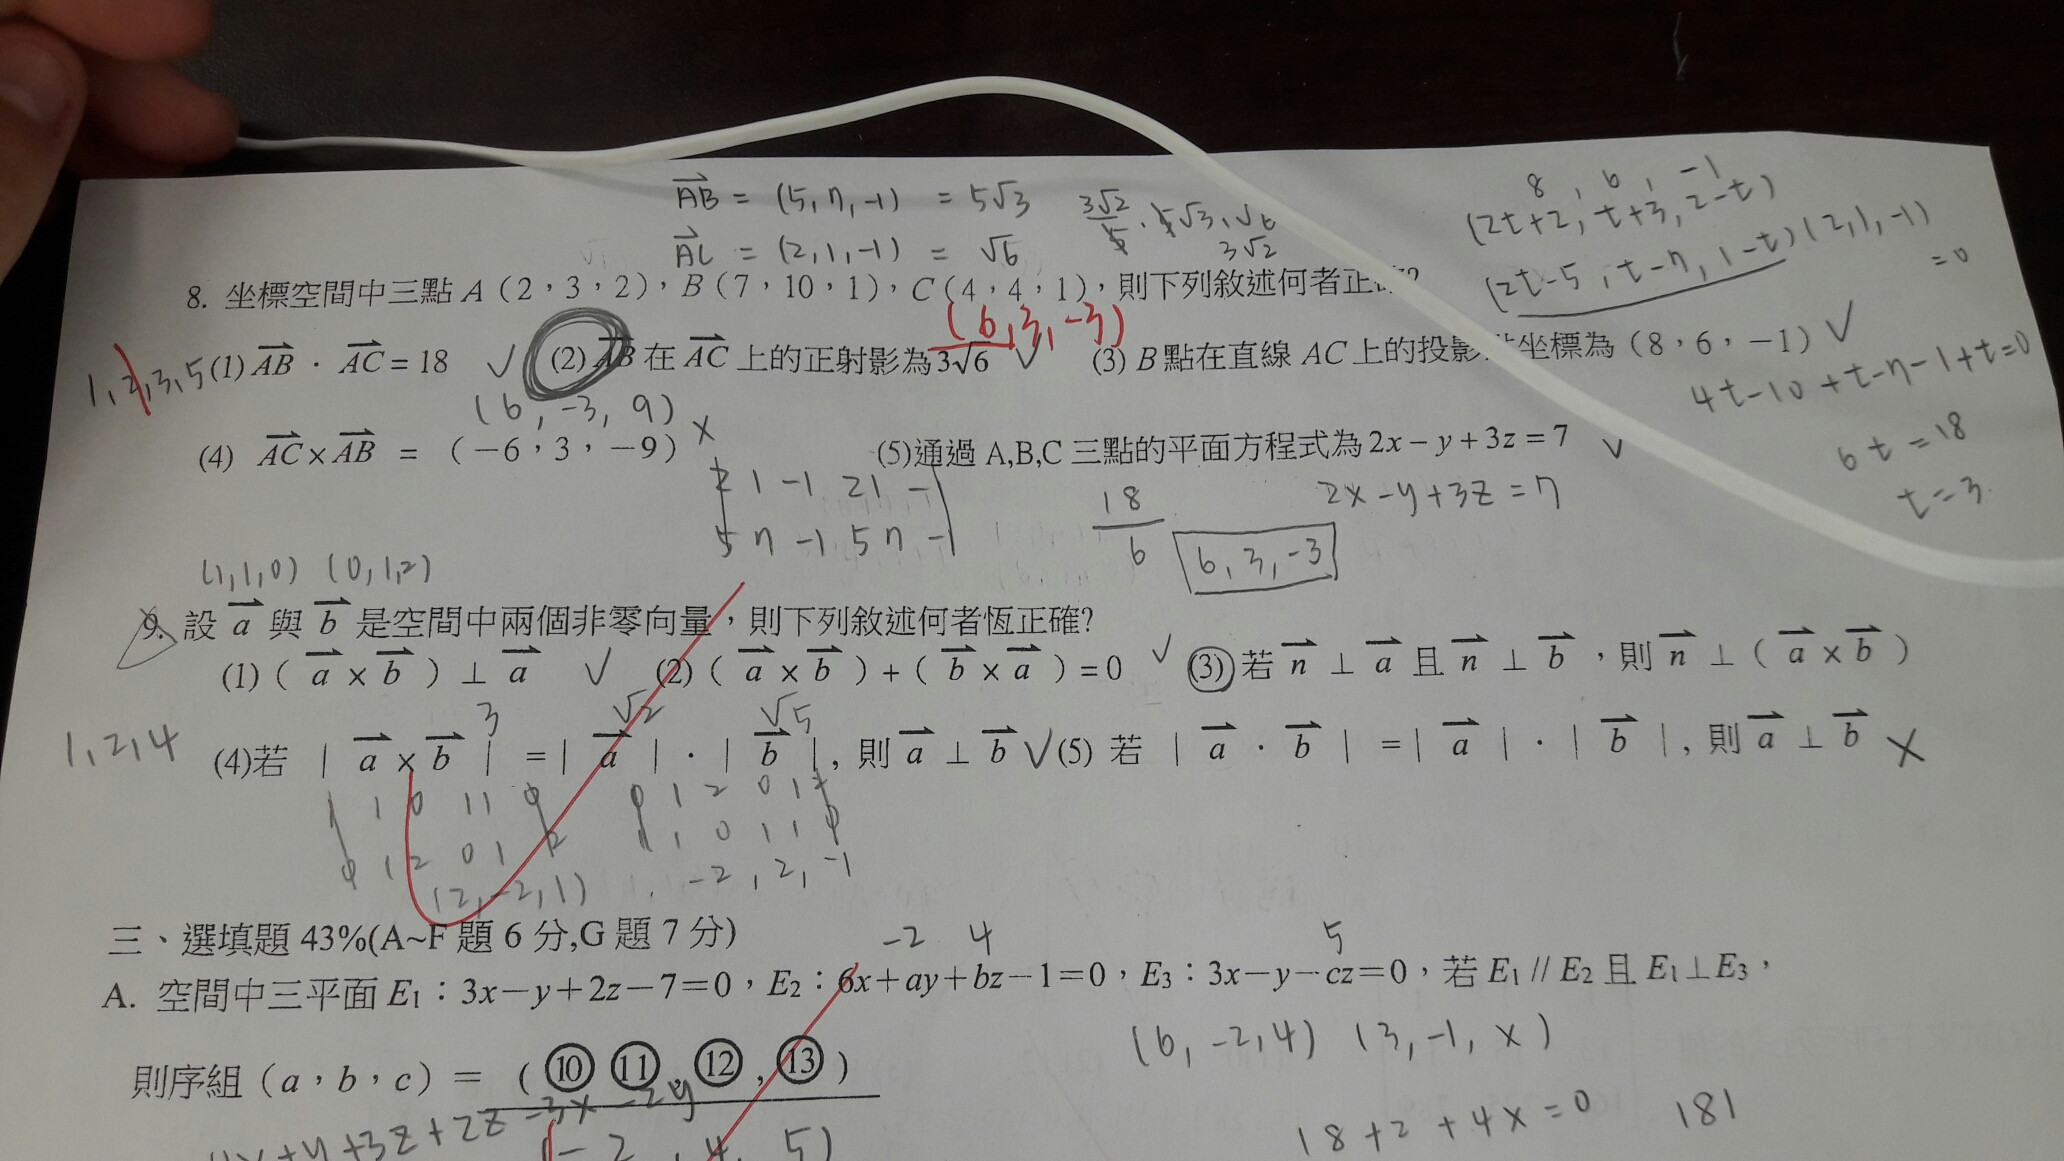 AB = (5, 7, -1) = 5√3
AC = (2, 1, -1) = √6
3√2
3√2/5 · 5√3 · √6
8, 6, -1
(2t+2, t+3, 2-t)
(2t-5, t-7, 1-t)(2, 1, -1) = 0
8. 坐標空間中三點 A（2，3，2），B（7，10，1），C（4，4，1），則下列敘述何者正確?
(6, 3, -3)
1, 2, 3, 5
(1) AB · AC = 18 ✓ (2) AB 在 AC 上的正射影為 3√6 ✓ (3) B 點在直線 AC 上的投影點坐標為（8，6，-1）✓
4t-10+t-7-1+t=0
6t=18
t=3
(6, -3, 9)
(4) AC×AB = （-6，3，-9） × (5)通過 A,B,C 三點的平面方程式為 2x-y+3z=7 ✓
2 1 -1 2 1 -1
5 7 -1 5 7 -1
18/6
6, 3, -3
2x-y+3z=7
(1,1,0) (0,1,2)
9. 設 a 與 b 是空間中兩個非零向量，則下列敘述何者恆正確?
(1)( a × b ) ⊥ a ✓ (2)( a × b )+( b × a )=0 ✓ (3)若 n ⊥ a 且 n ⊥ b ，則 n ⊥( a × b )
3 √2 √5
1,2,4
(4)若 | a × b | =| a | · | b |, 則 a ⊥ b ✓ (5) 若 | a · b | =| a | · | b |, 則 a ⊥ b ×
1 1 0 1 1 0
0 1 2 0 1 2
(2, -2, 1)
0 1 2 0 1 2
1 1 0 1 1 0
-2, 2, -1
三、選填題 43%(A~F 題 6 分,G 題 7 分)
-2 4 5
A. 空間中三平面 E1：3x-y+2z-7=0，E2：6x+ay+bz-1=0，E3：3x-y-cz=0，若 E1 // E2 且 E1⊥E3，
(6, -2, 4) (3, -1, x)
則序組（a，b，c）= ( ⑩ ⑪ , ⑫ , ⑬ )
18+2+4x=0
181
+y+3z+2z-3x-2y
(-2, 4, 5)